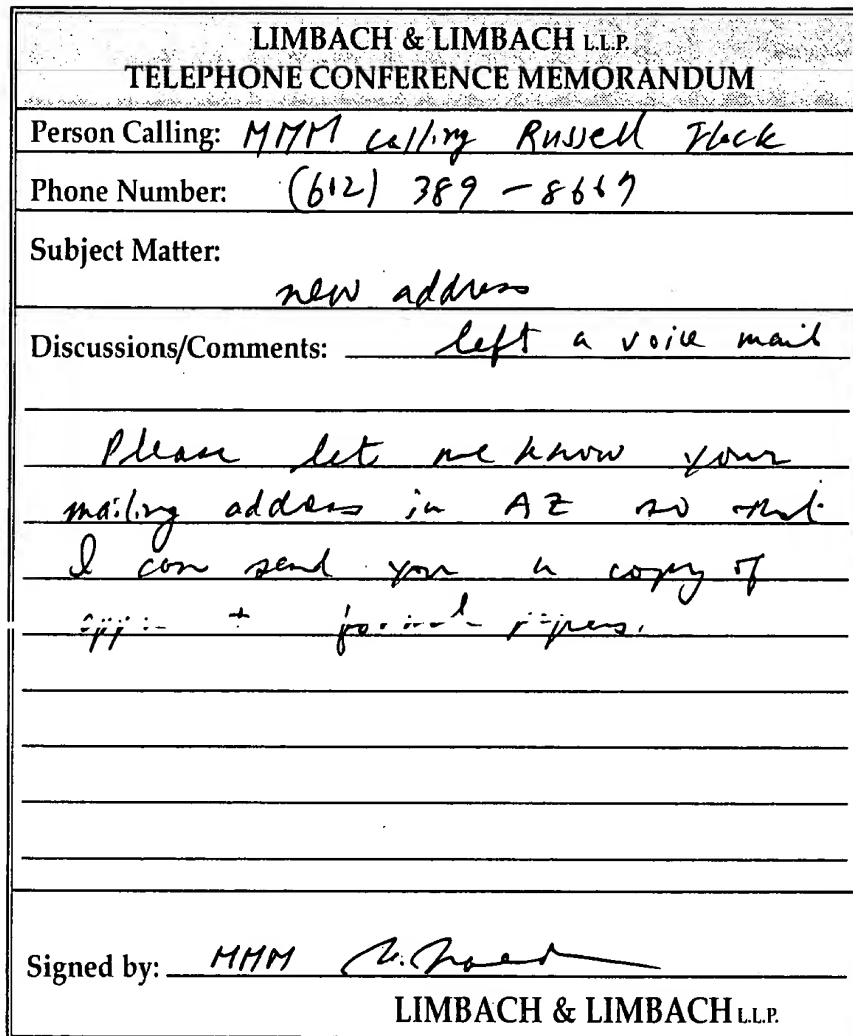 LIMBACH & LIMBACH L.L.P.
TELEPHONE CONFERENCE MEMORANDUM
Person Calling: MMM calling Russell
Phone Number: (612) 389 - 8667
Subject Matter:
new address
Discussions/Comments: left a voice mail
Please let me know your
mailing address in AZ so that
I can send you a copy of
+ papers.
Signed by: MMM
LIMBACH & LIMBACH L.L.P.